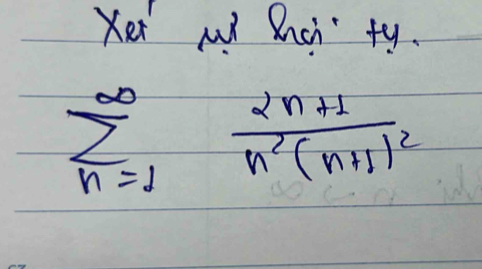 Xét sự hội tụ.
∞
∑ (2n+1)/(n²(n+1)²)
n=1